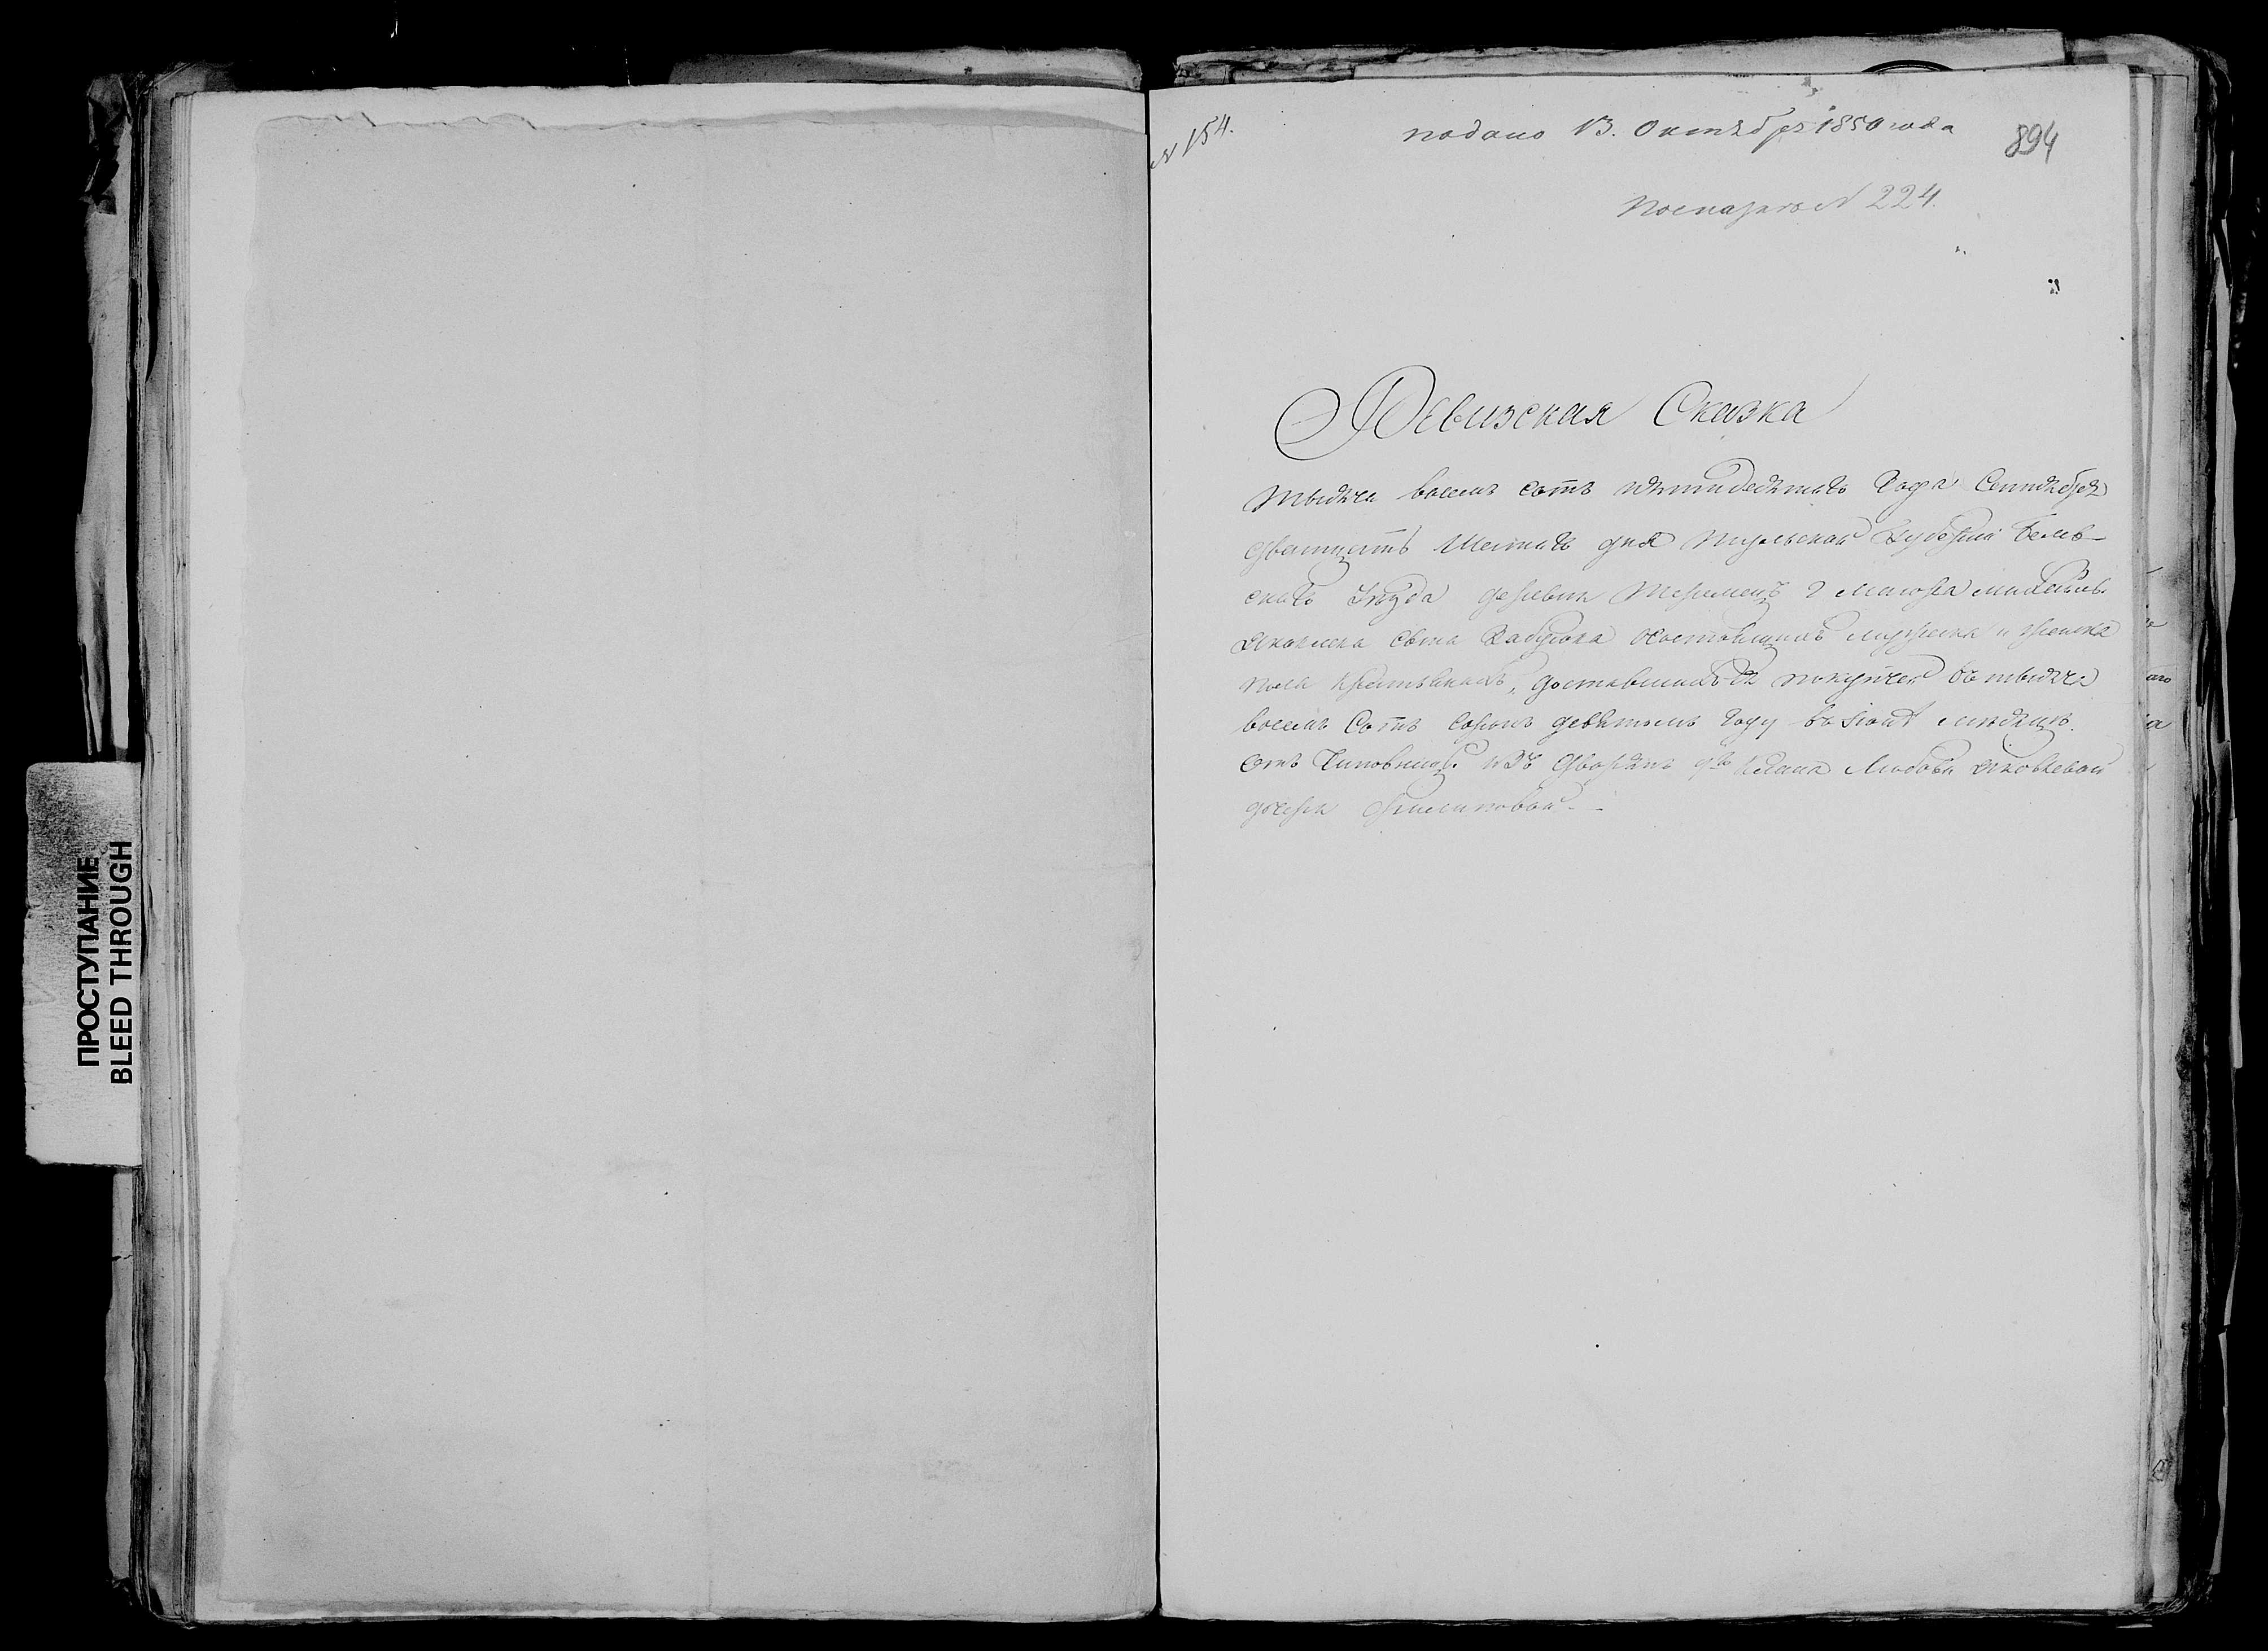 ПРОСТУПАНИЕ
BLEED THROUGH
№ 154.
подано 13. Октября 1850 года
894
№ 224.
Ревизская Сказка
тысяча восемь сотъ пятидесятаго Года Сентября
дватцать Шестаго дня Тульской Губернии Белев-
скаго Уезда деревни маиора
сына о состоящихъ мужеска и женска
пола крестьянахъ, доставшихся покупке въ тысяча
восемь Сотъ Сорокъ девятомъ Году въ месяце
отъ изъ дворянъ Любови Яковлевой
дочери